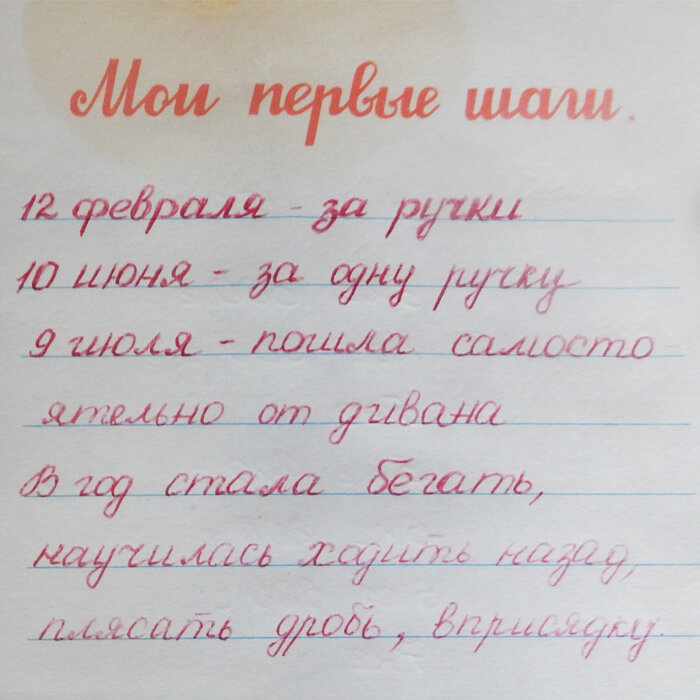 Мои первые шаги.
12 февраля - за ручки
10 июня - за одну ручку
9 июля - пошла самосто-
ятельно от дивана
В год стала бегать,
научилась ходить назад,
плясать дробь, вприсядку.